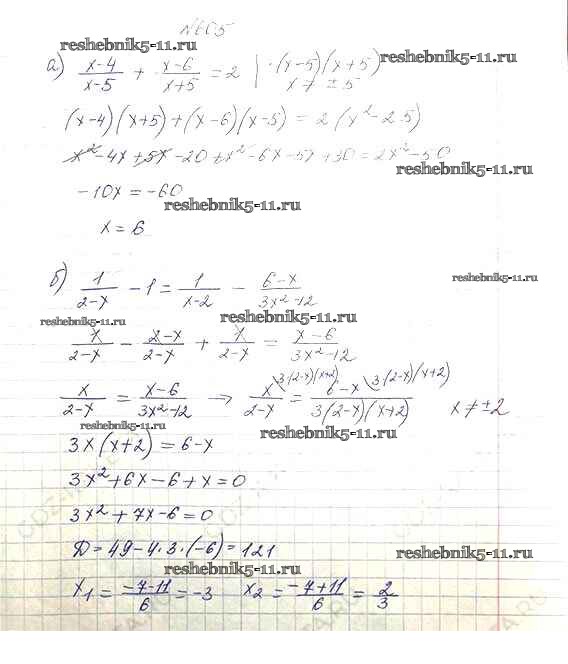 №605
reshebnik5-11.ru
а) (x-4)/(x-5) + (x-6)/(x+5) = 2 | ·(x-5)(x+5) reshebnik5-11.ru
x ≠ ±5
(x-4)(x+5)+(x-6)(x-5) = 2(x²-25)
x²-4x+5x-20+x²-6x-5x+30=2x²-50
reshebnik5-11.ru
-10x=-60
reshebnik5-11.ru
x=6
б) 1/(2-x) - 1 = 1/(x-2) - (6-x)/(3x²-12) reshebnik5-11.ru
reshebnik5-11.ru reshebnik5-11.ru
1/(2-x) - (2-x)/(2-x) + 1/(2-x) = (x-6)/(3x²-12)
x/(2-x) = (x-6)/(3x²-12) → x/(2-x) \3(2-x)(x+2) = (6-x)/(3(2-x)(x+2)) \3(2-x)(x+2) x ≠ ±2
reshebnik5-11.ru reshebnik5-11.ru
3x(x+2)=6-x
3x²+6x-6+x=0
3x²+7x-6=0
Д=49-4·3·(-6)=121
reshebnik5-11.ru
reshebnik5-11.ru
x₁=(-7-11)/6=-3 x₂=(-7+11)/6=2/3
reshebnik5-11.ru